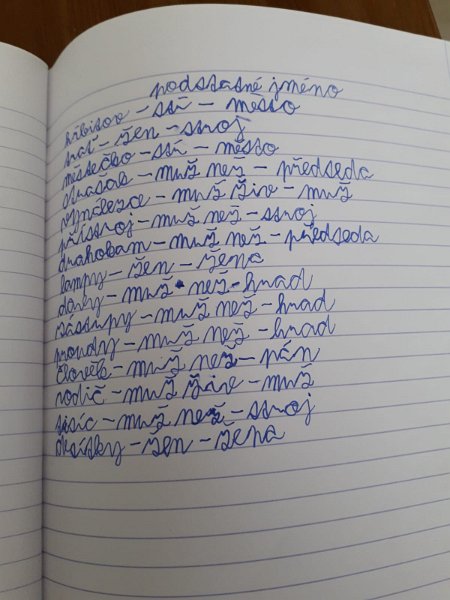 podstatné jméno
hřbitov - stř - město
trať - žen - stroj
městečko - stř - město
chrašab - muž než - předseda
vynálezce - muž živ - muž
přístroj - muž než - stroj
drahokam - muž než - předseda
lampy - žen - žena
dávky - muž než - hrad
zástupy - muž než - hrad
proudy - muž než - hrad
člověk - muž než - pán
rodič - muž živ - muž
tisíc - muž než - stroj
žen - žena